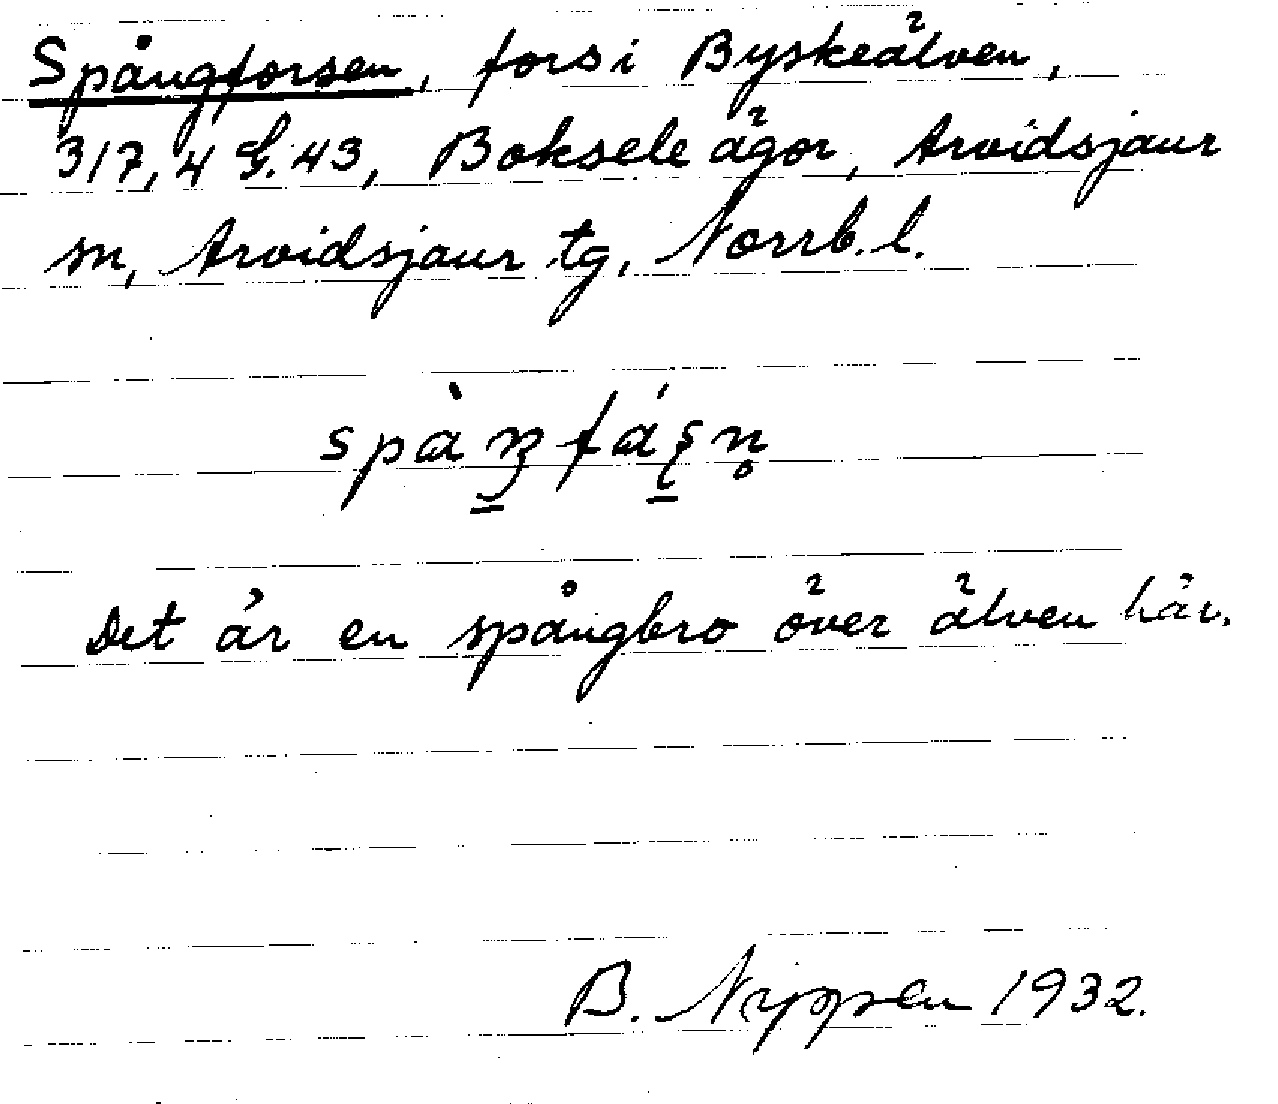 Spångforsen, fors i Byskeälven,
317,4 G. 43, Boksele ägor, Arvidsjaur
sn, Arvidsjaur tg, Norrb. l.
Det är en spångbro över älven här.
B. 1932.